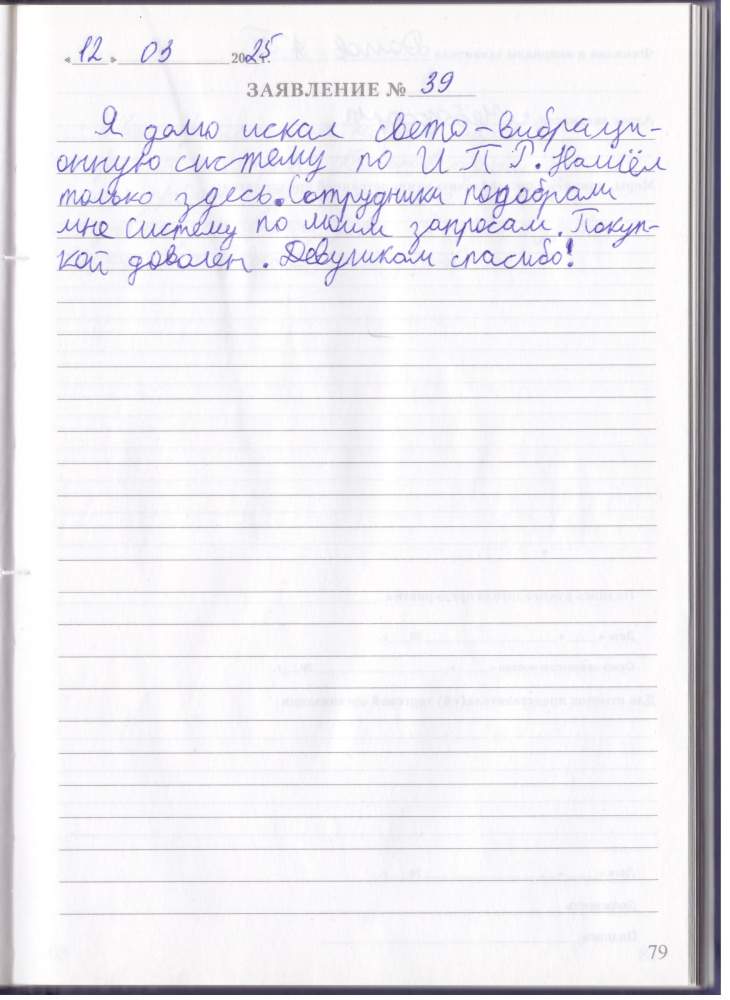 « 12 » 03 2025 г.
ЗАЯВЛЕНИЕ № 39
Я долго искал свето-вибраци-
онную систему по ИПР. Нашёл
только здесь. Сотрудники подобрали
мне систему по моим запросам. Покуп-
кой доволен. Девушкам спасибо!
79